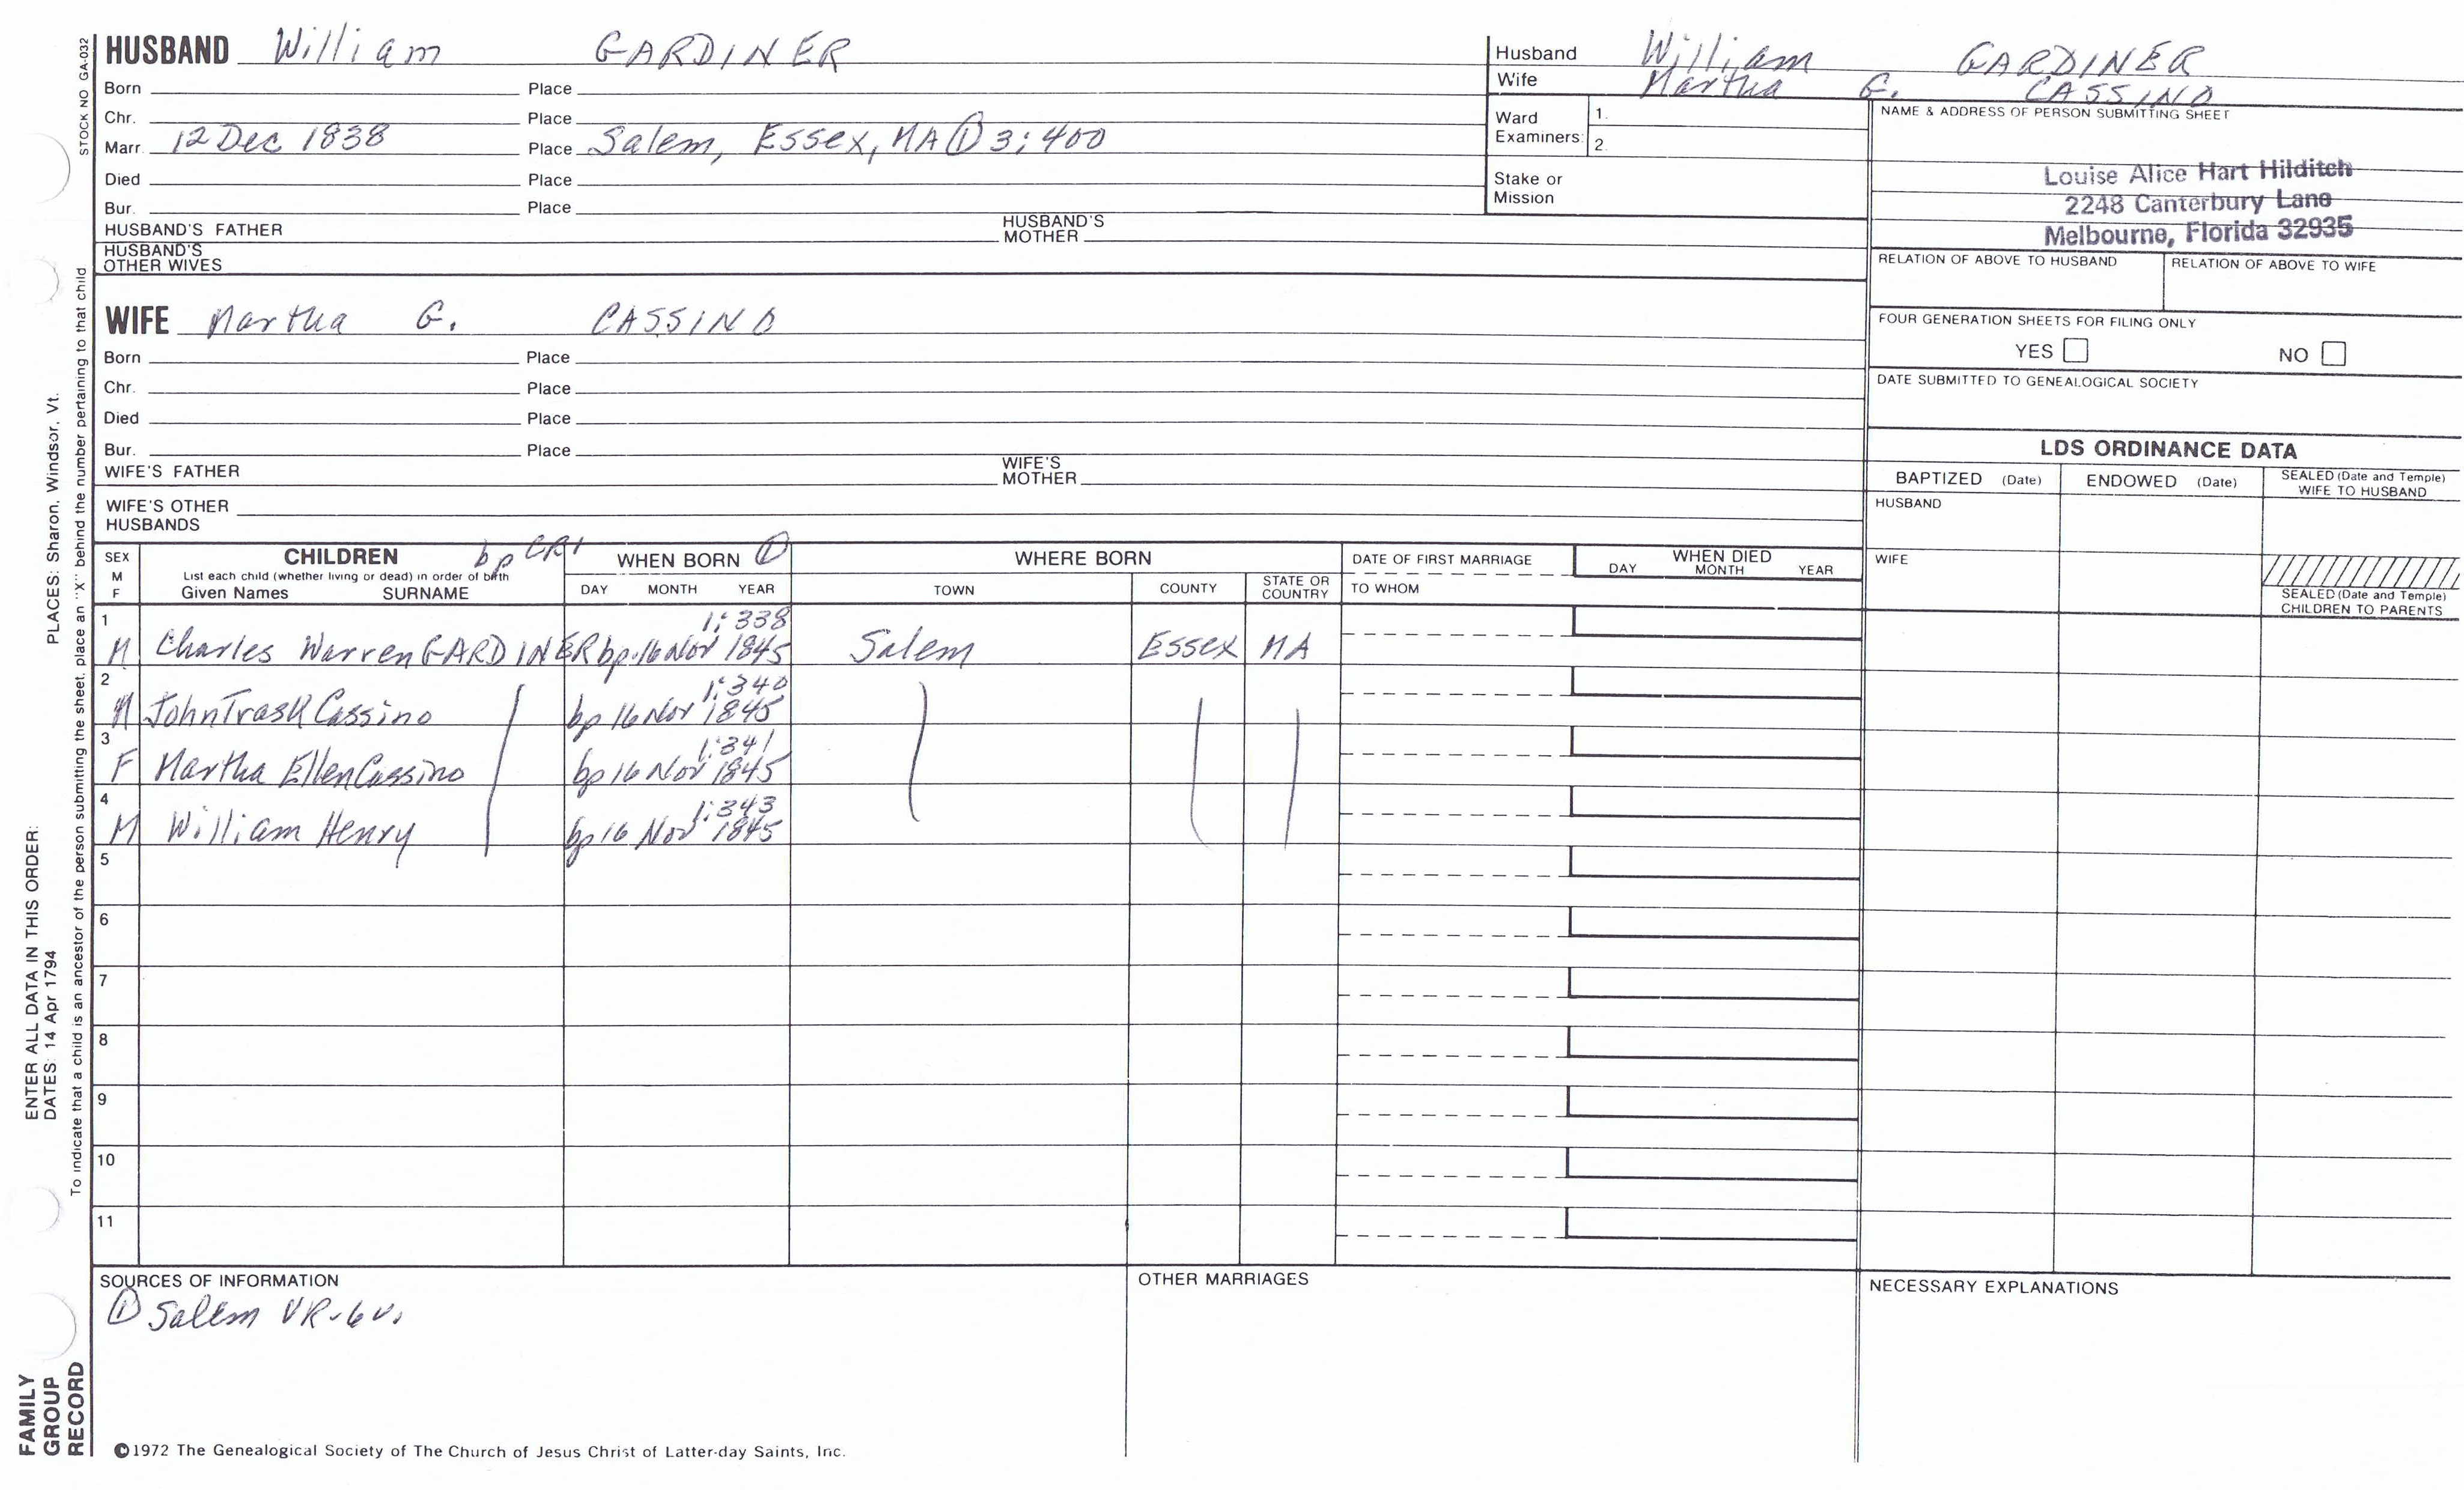 STOCK NO GA-032
HUSBAND William GARDINER
Born Place
Chr. Place
Marr. 12 Dec 1838 Place Salem, Essex, MA ① 3:400
Died Place
Bur. Place
HUSBAND'S FATHER HUSBAND'S MOTHER
HUSBAND'S OTHER WIVES
WIFE Martha G. CASSINO
Born Place
Chr. Place
Died Place
Bur. Place
WIFE'S FATHER WIFE'S MOTHER
WIFE'S OTHER HUSBANDS
Husband William GARDINER
Wife Martha G. CASSINO
Ward Examiners: 1.
2.
Stake or Mission
NAME & ADDRESS OF PERSON SUBMITTING SHEET
Louise Alice Hart Hilditch
2248 Canterbury Lane
Melbourne, Florida 32935
RELATION OF ABOVE TO HUSBAND RELATION OF ABOVE TO WIFE
FOUR GENERATION SHEETS FOR FILING ONLY
YES NO
DATE SUBMITTED TO GENEALOGICAL SOCIETY
LDS ORDINANCE DATA
BAPTIZED (Date) ENDOWED (Date) SEALED (Date and Temple) WIFE TO HUSBAND
HUSBAND
WIFE
SEALED (Date and Temple) CHILDREN TO PARENTS
SEX M F
CHILDREN bp CR1
List each child (whether living or dead) in order of birth
Given Names SURNAME
WHEN BORN ①
DAY MONTH YEAR
WHERE BORN
TOWN COUNTY STATE OR COUNTRY
DATE OF FIRST MARRIAGE
TO WHOM
WHEN DIED
DAY MONTH YEAR
1 1:338
M Charles Warren GARDINER bp. 16 Nov 1845 Salem Essex MA
2 1:340
M John Trask Cassino bp 16 Nov 1845
3 1:341
F Martha Ellen Cassino bp 16 Nov 1845
4 1:343
M William Henry bp 16 Nov 1845
5
6
7
8
9
10
11
SOURCES OF INFORMATION
① Salem VR-6v.
OTHER MARRIAGES
NECESSARY EXPLANATIONS
©1972 The Genealogical Society of The Church of Jesus Christ of Latter-day Saints, Inc.
ENTER ALL DATA IN THIS ORDER:
DATES: 14 Apr 1794 PLACES: Sharon, Windsor, Vt.
To indicate that a child is an ancestor of the person submitting the sheet, place an "X" behind the number pertaining to that child
FAMILY
GROUP
RECORD